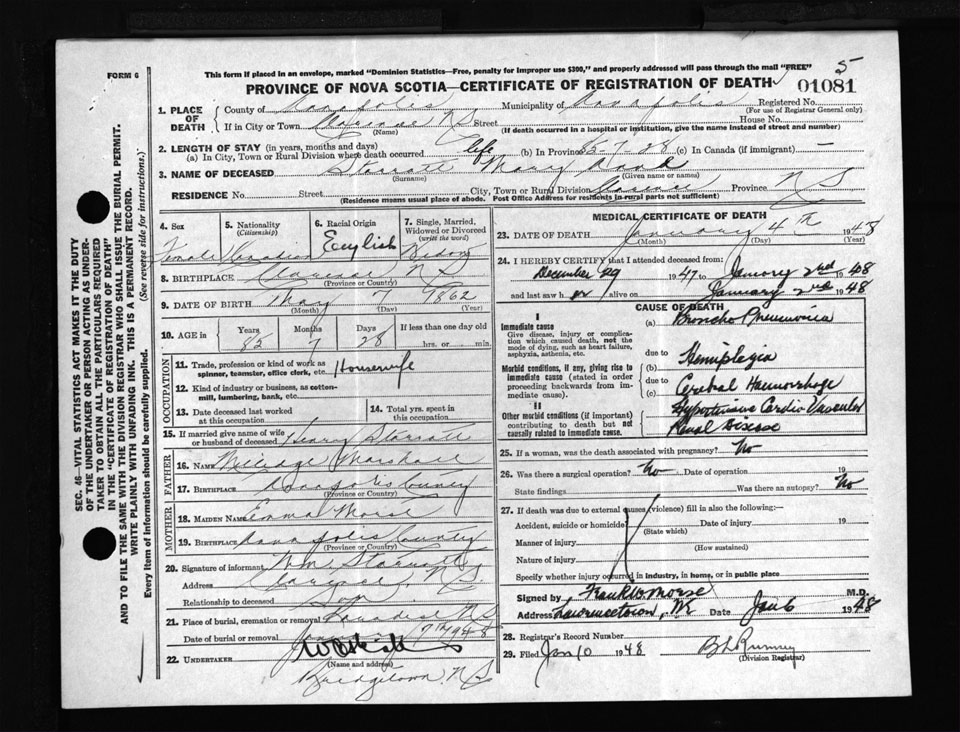 FORM 6
This form if placed in an envelope, marked "Dominion Statistics—Free, penalty for improper use $300," and properly addressed will pass through the mail "FREE"
5
PROVINCE OF NOVA SCOTIA—CERTIFICATE OF REGISTRATION OF DEATH
01081
1. PLACE OF DEATH
County of Annapolis Municipality of Annapolis Registered No.
(For use of Registrar General only)
If in City or Town Clarence N S Street House No.
(Name) (If death occurred in a hospital or institution, give the name instead of street and number)
2. LENGTH OF STAY (in years, months and days)
(a) In City, Town or Rural Division where death occurred life (b) In Province 7 - 28 (c) In Canada (if immigrant) —
3. NAME OF DECEASED Starratt Mary
(Surname) (Given name or names)
RESIDENCE No. Street City, Town or Rural Division Clarence Province N S
(Residence means usual place of abode. Post Office Address for residents in rural parts not sufficient)
4. Sex
Female
5. Nationality
(Citizenship)
Canadian
6. Racial Origin
English
7. Single, Married, Widowed or Divorced
(write the word)
Widow
8. BIRTHPLACE Clarence N S
(Province or Country)
9. DATE OF BIRTH May 7 1862
(Month) (Day) (Year)
10. AGE in
Years Months Days If less than one day old
7 28 hrs. or min.
OCCUPATION
11. Trade, profession or kind of work as spinner, teamster, office clerk, etc. Housewife
12. Kind of industry or business, as cotton-mill, lumbering, bank, etc.
13. Date deceased last worked at this occupation
14. Total yrs. spent in this occupation
15. If married give name of wife or husband of deceased Henry Starratt
FATHER
16. NAME Milledge Marshall
17. BIRTHPLACE Annapolis County
(Province or Country)
MOTHER
18. MAIDEN NAME Emma Morse
19. BIRTHPLACE Annapolis County
(Province or Country)
20. Signature of informant Wm. Starratt
Address Clarence, N.S.
Relationship to deceased Son
21. Place of burial, cremation or removal N S
Date of burial or removal Jan 7th 1948
22. UNDERTAKER
(Name and address)
Bridgetown. N S
MEDICAL CERTIFICATE OF DEATH
23. DATE OF DEATH January 4th 1948
(Month) (Day) (Year)
24. I HEREBY CERTIFY that I attended deceased from:
December 29 1947 to January 2nd 1948
and last saw h er alive on January 2nd 1948
CAUSE OF DEATH
I
Immediate cause
Give disease, injury or complication which caused death, not the mode of dying, such as heart failure, asphyxia, asthenia, etc.
(a) Broncho Pneumonia
due to
Morbid conditions, if any, giving rise to immediate cause (stated in order proceeding backwards from immediate cause).
(b) Hemiplegia
due to
(c) Cerebral Haemorrhage
II
Other morbid conditions (if important) contributing to death but not causally related to immediate cause.
Hypertensive Cardio Vascular
Renal Disease
25. If a woman, was the death associated with pregnancy? No
26. Was there a surgical operation? No Date of operation 19
State findings Was there an autopsy? No
27. If death was due to external causes (violence) fill in also the following:—
Accident, suicide or homicide? Date of injury 19
(State which)
Manner of injury
(How sustained)
Nature of injury
Specify whether injury occurred in industry, in home, or in public place
Signed by Frank W Morse M.D.
Address Lawrencetown, NS Date Jan 6 1948
28. Registrar's Record Number
29. Filed Jan 10 1948
(Division Registrar)
SEC. 46—VITAL STATISTICS ACT MAKES IT THE DUTY
OF THE UNDERTAKER OR PERSON ACTING AS UNDER-
TAKER TO OBTAIN ALL THE PARTICULARS REQUIRED
IN THE "CERTIFICATE OF REGISTRATION OF DEATH"
AND TO FILE THE SAME WITH THE DIVISION REGISTRAR WHO SHALL ISSUE THE BURIAL PERMIT.
WRITE PLAINLY WITH UNFADING INK. THIS IS A PERMANENT RECORD.
Every item of information should be carefully supplied. (See reverse side for instructions.)